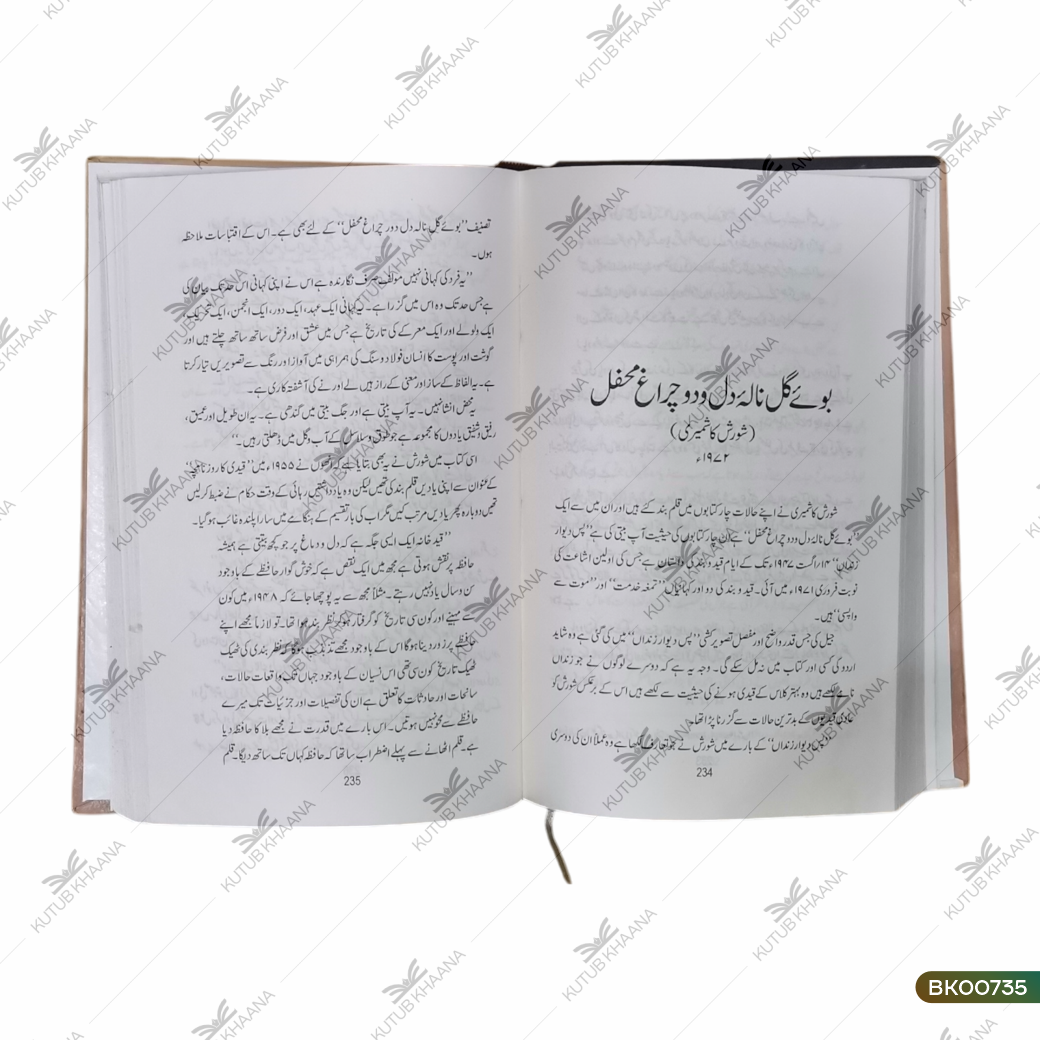 بوئے گل نالۂ دل دودِ چراغ محفل
(شورش کاشمیری)
۱۹۷۲ء
شورش کاشمیری نے اپنے حالات چار کتابوں میں قلم بند کئے ہیں اور ان میں سے ایک
"بوئے گل نالہ دل دود چراغ محفل" ہے ان چار کتابوں کی حیثیت آپ بیتی کی ہے "پس دیوار
زنداں" ۱۴؍ اگست ۱۹۴۷ تک کے ایام قید و بند کی داستان ہے جس کی اولین اشاعت کی
نوبت فروری ۱۹۷۱ء میں آئی۔ قید و بند کی دو اور کہانیاں "تمغہ خدمت" اور "موت سے
واپسی" ہیں۔
جیل کی جس قدر واضح اور مفصل تصویر کشی "پس دیوار زنداں" میں کی گئی ہے وہ شاید
اردو کی کسی اور کتاب میں نہ مل سکے گی۔ وجہ یہ ہے کہ دوسرے لوگوں نے جو زنداں
نامے لکھے ہیں وہ بہتر کلاس کے قیدی ہونے کی حیثیت سے لکھے ہیں اس کے برعکس شورش کو
عادی قیدیوں کے بدترین حالات سے گزرنا پڑا تھا۔
"پس دیوار زنداں" کے بارے میں شورش نے جو تعارف لکھا ہے وہ عملاً ان کی دوسری
234
تصنیف "بوئے گل نالہ دل دور چراغ محفل" کے لئے بھی ہے۔ اس کے اقتباسات ملاحظہ
ہوں۔
"یہ فرد کی کہانی نہیں مولف صرف نگارندہ ہے اس نے اپنی کہانی اس حد تک بیان کی
ہے جس حد تک وہ اس میں گزرا ہے۔ یہ کہانی ایک عہد، ایک دور، ایک انجمن، ایک تحریک،
ایک ولولے اور ایک معرکے کی تاریخ ہے جس میں عشق اور فرض ساتھ ساتھ چلتے ہیں اور
گوشت اور پوست کا انسان فولاد و سنگ کی ہمراہی میں آواز اور رنگ سے تصویریں تیار کرتا
ہے۔ یہ الفاظ کے ساز اور معنی کے راز ہیں لے اور نے کی آشفتہ کاری ہے۔
یہ محض انشا نہیں۔ یہ آپ بیتی ہے اور جگ بیتی میں گندھی ہے۔ یہ ان طویل اور عمیق،
رفیق و شفیق یادوں کا مجموعہ ہے جو طوق و سلاسل کے آب و گل میں ڈھلتی رہیں۔"
اسی کتاب میں شورش نے یہ بھی بتایا ہے کہ انھوں نے ۱۹۵۵ء میں "قیدی کا روزنامچہ"
کے عنوان سے اپنی یادیں قلم بند کی تھیں لیکن وہ یادداشتیں رہائی کے وقت حکام نے ضبط کر لیں
تھیں دوبارہ پھر یادیں مرتب کیں مگر اب کی بار تقسیم کے ہنگامے میں سارا پلندہ غائب ہو گیا۔
"قید خانہ ایک ایسی جگہ ہے کہ دل و دماغ پر جو کچھ بیتتی ہے ہمیشہ
حافظہ پر نقش ہوتی ہے مجھ میں ایک نقص ہے کہ خوش گوار حافظے کے باوجود
سن و سال یاد نہیں رہتے۔ مثلاً مجھ سے یہ پوچھا جائے کہ ۱۹۴۸ء میں کون
سے مہینے اور کون سی تاریخ کو گرفتار ہو کر نظر بند ہوا تھا۔ تو لازما مجھے اپنے
حافظے پر زور دینا ہوگا اس کے باوجود مجھے تذبذب ہوگا کہ نظر بندی کی ٹھیک
ٹھیک تاریخ کون سی تھی اس نسیان کے باوجود جہاں تک واقعات حالات،
سانحات اور حادثات کا تعلق ہے ان کی تفصیلات اور جزئیات تک میرے
حافظے سے محو نہیں ہوتیں۔ اس بارے میں قدرت نے مجھے بلا کا حافظہ دیا
ہے۔ قلم اٹھانے سے پہلے اضطراب سا تھا کہ حافظہ کہاں تک ساتھ دیگا۔ قلم
235
KUTUB KHAANA
BK00735